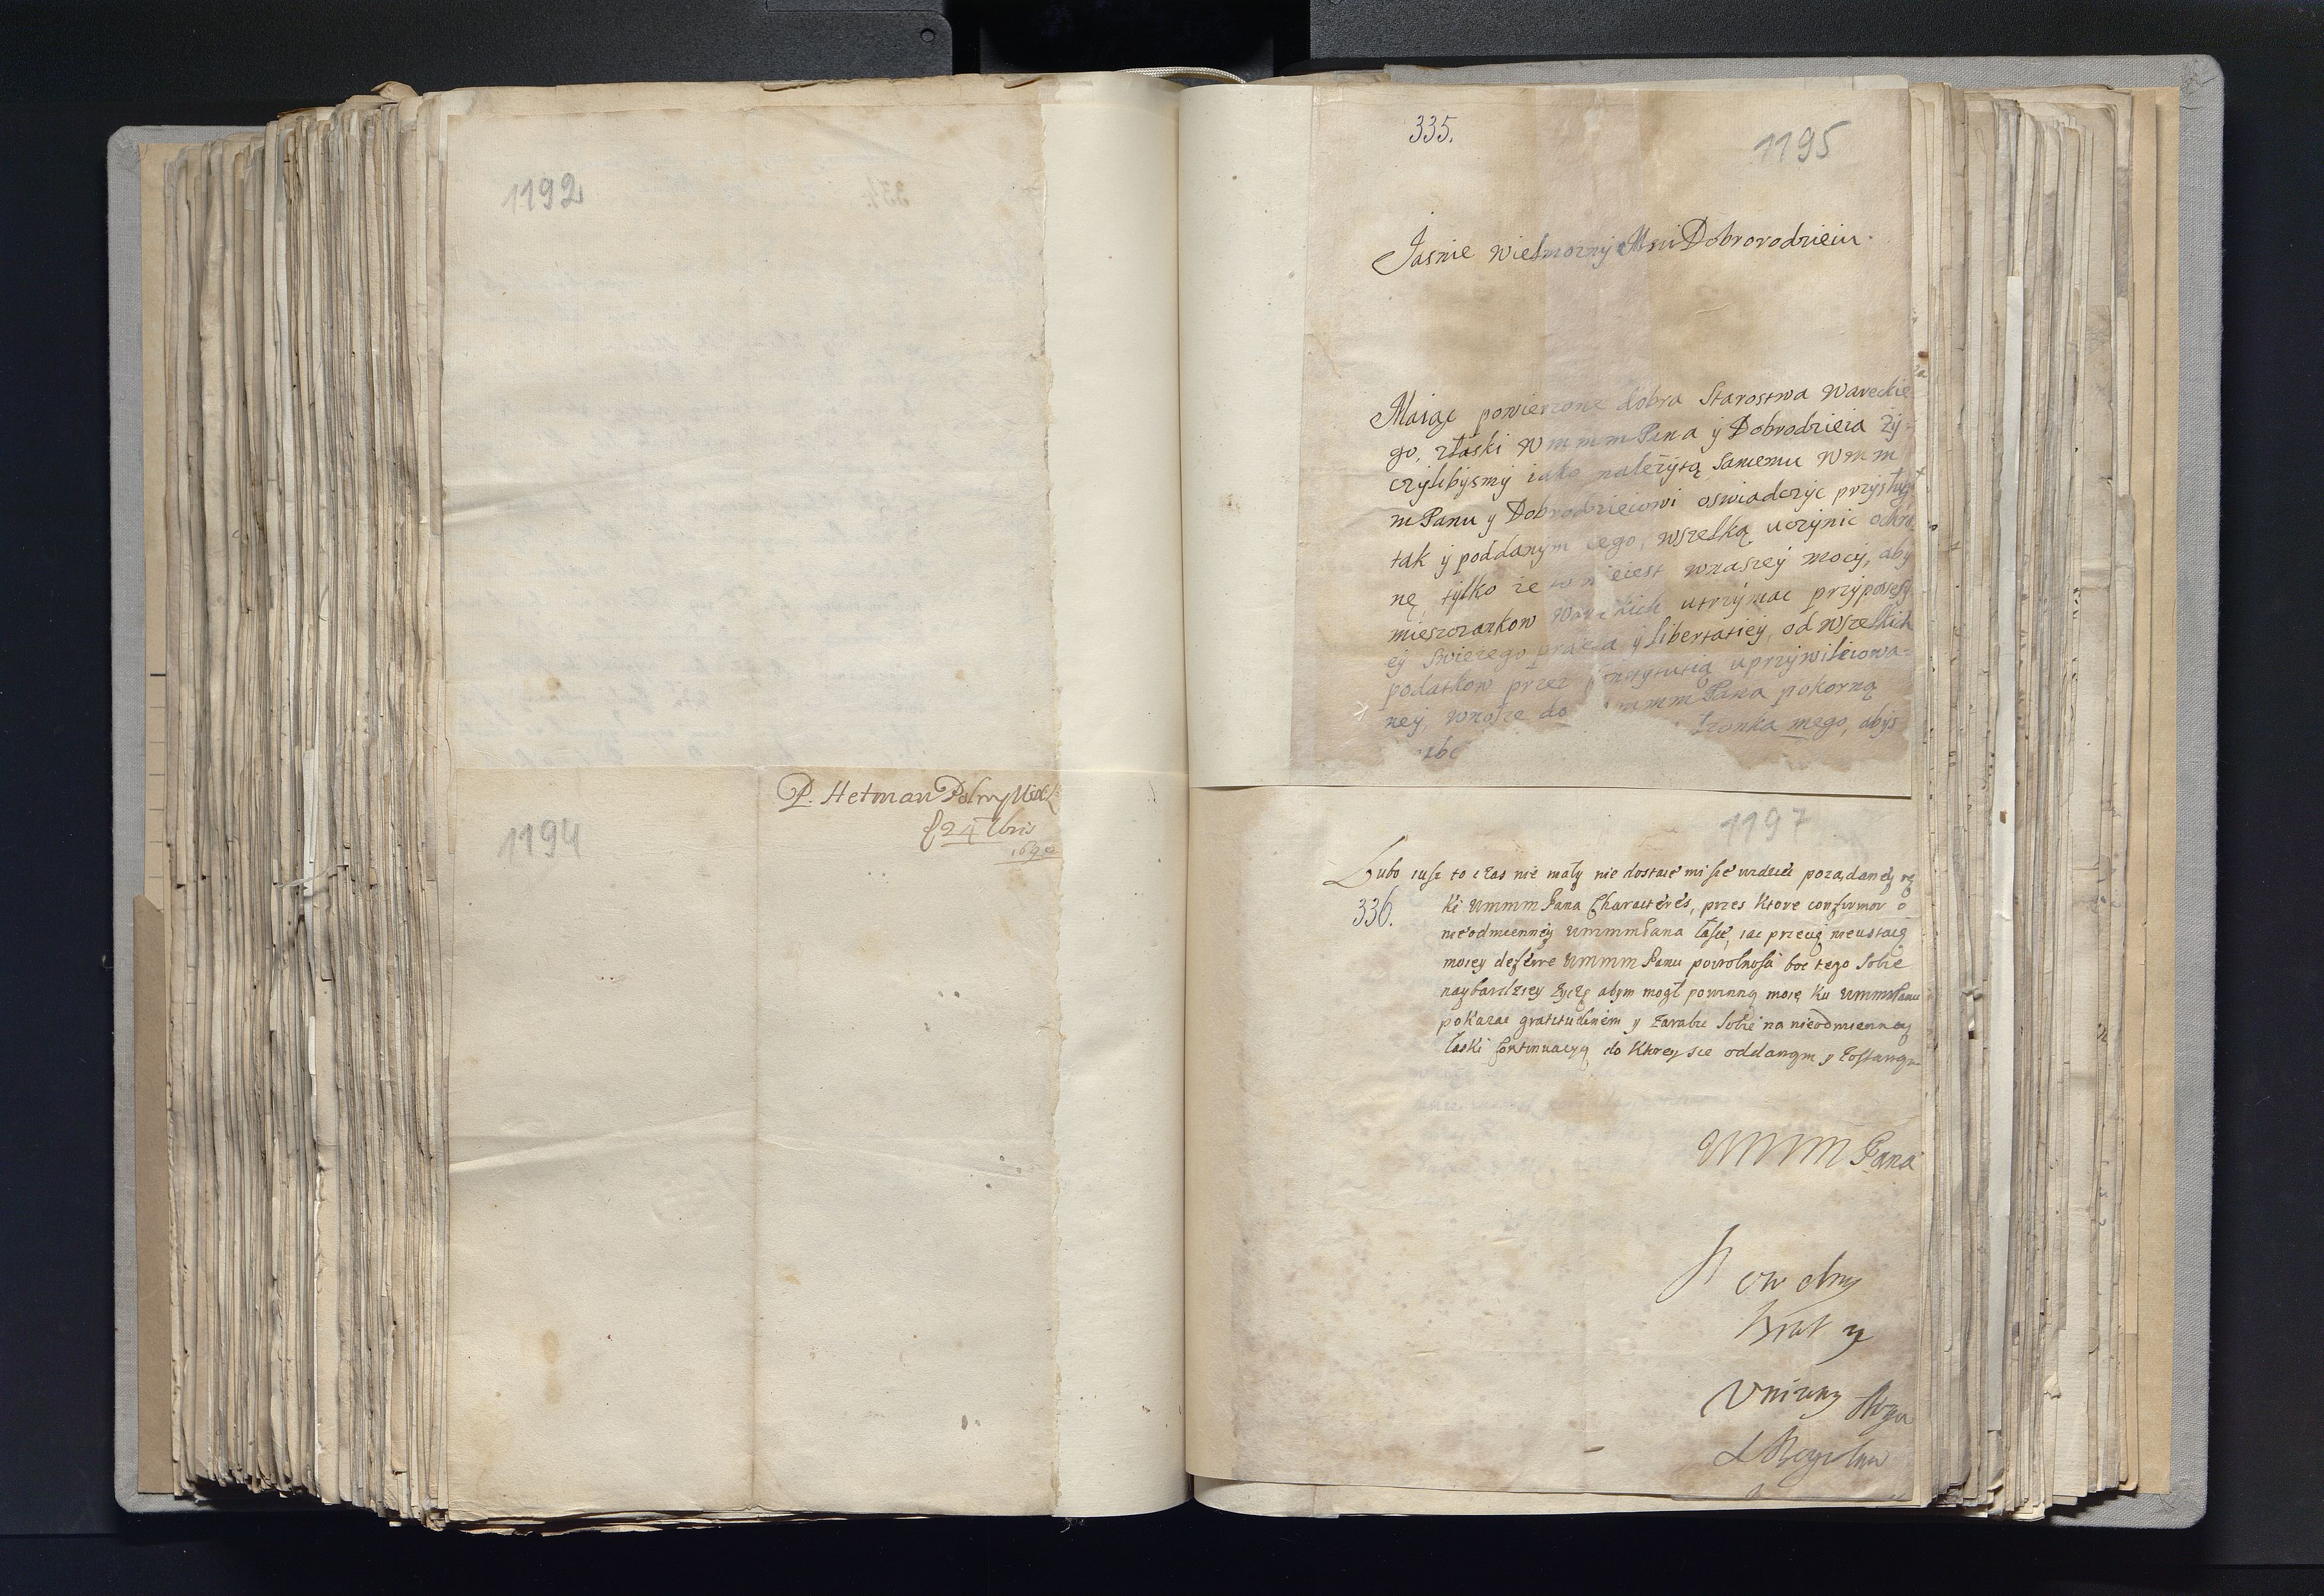 1192
P. Hetman Polny
24
1194
335.
1195
Jasnie Wielmozny Msci Dobrorodzieiu.
Maiąc powierzone dobra Starostwa Wareckie
go, złaski Wmmm Pana ÿ Dobrodzieia żÿ-
czÿlibÿsmÿ iako należÿtą samemu Wmm
m Panu ÿ Dobrodzieiowi oswiadczÿc przÿsług
tak ÿ poddanÿm iego, wszelką uczÿnic ochro
nę, tÿlko że to nieiest wnaszeÿ mocÿ, abÿ
mieszczankow Wareckich utrzÿmac przÿ
eÿ swieżego prawa ÿ libertatieÿ, od wszelkich
podatkow przez uprzÿwileiowa-
neÿ, wnosze do mm Pana pokorną
mego, abÿs
1197
Lubo iusz to czas nie mały nie dostaie mi sie widziec pożądaneÿ rę
336.
ki Wmmm Pana Characteres, przes ktore confirmor o
nieodmienneÿ Wmmm Pana łasce, iac przecię nieustaię
moiey Wmmm Panu powolnosci boc tego sobie
naybardziey życzę abym mogł powinną moię ku Wmmm Panu
pokazac gratitudinem y zarabic sobie na nieodmienney
łaski Continuacyą, do ktorey sie oddawszy zostawam
WMMM Pana
Powolny
Brat y
Vnizony sługa